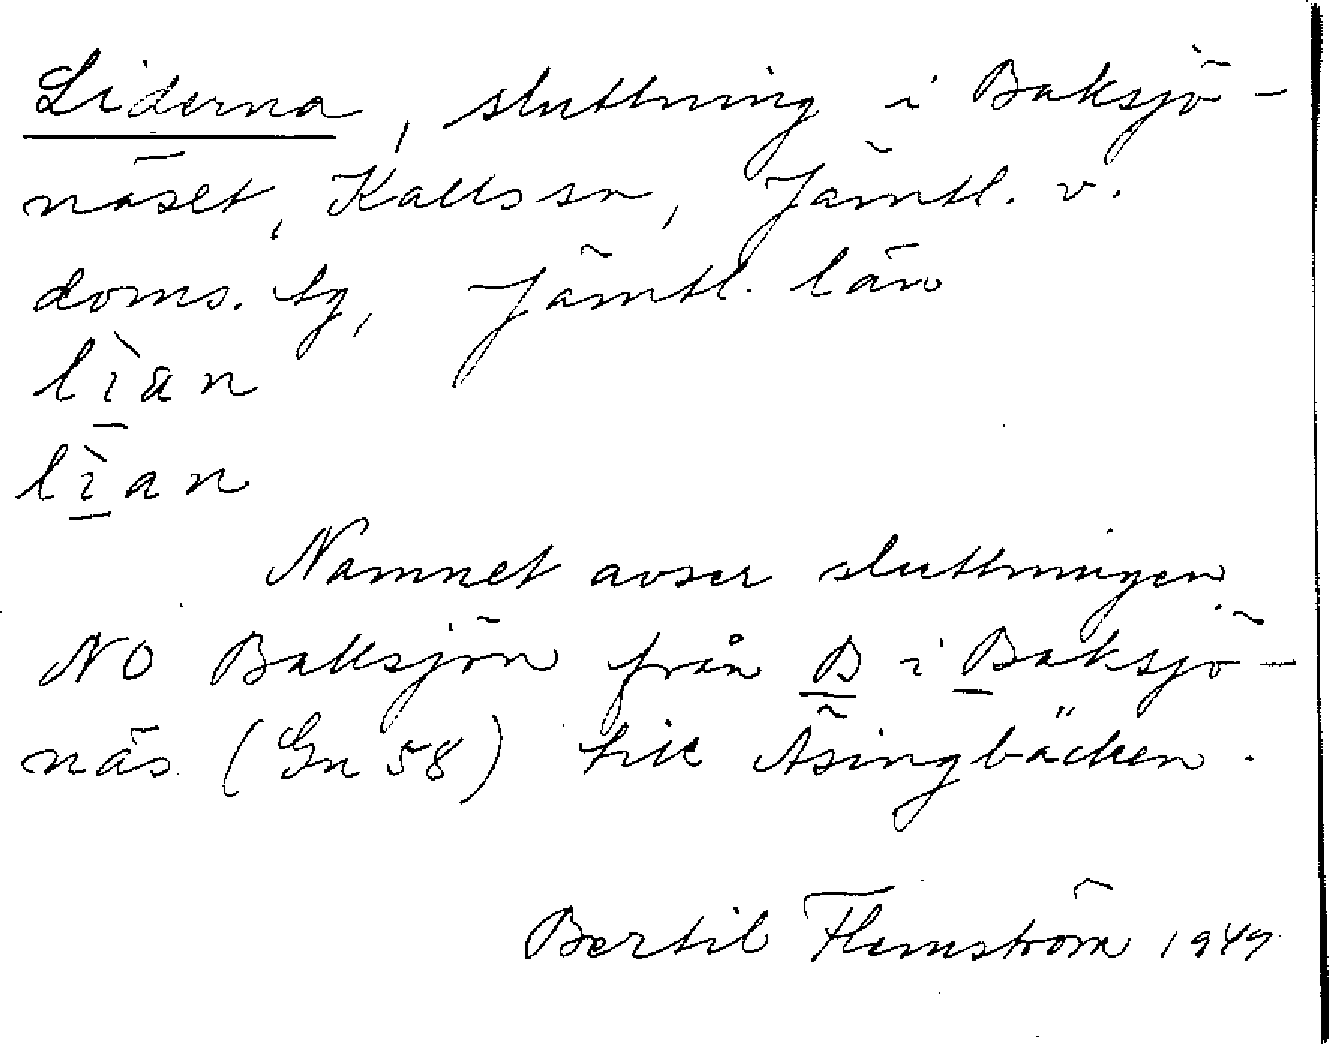 Liderna, sluttning i Baksjö-
näset, Kalls sn, Jämtl. v.
doms. tg, Jämtl. län
lìan
lìan
Namnet avser sluttningen
NO Baksjön från B i Baksjö-
näs (Gn 58) till Åsingbäcken.
Bertil Flemström 1949